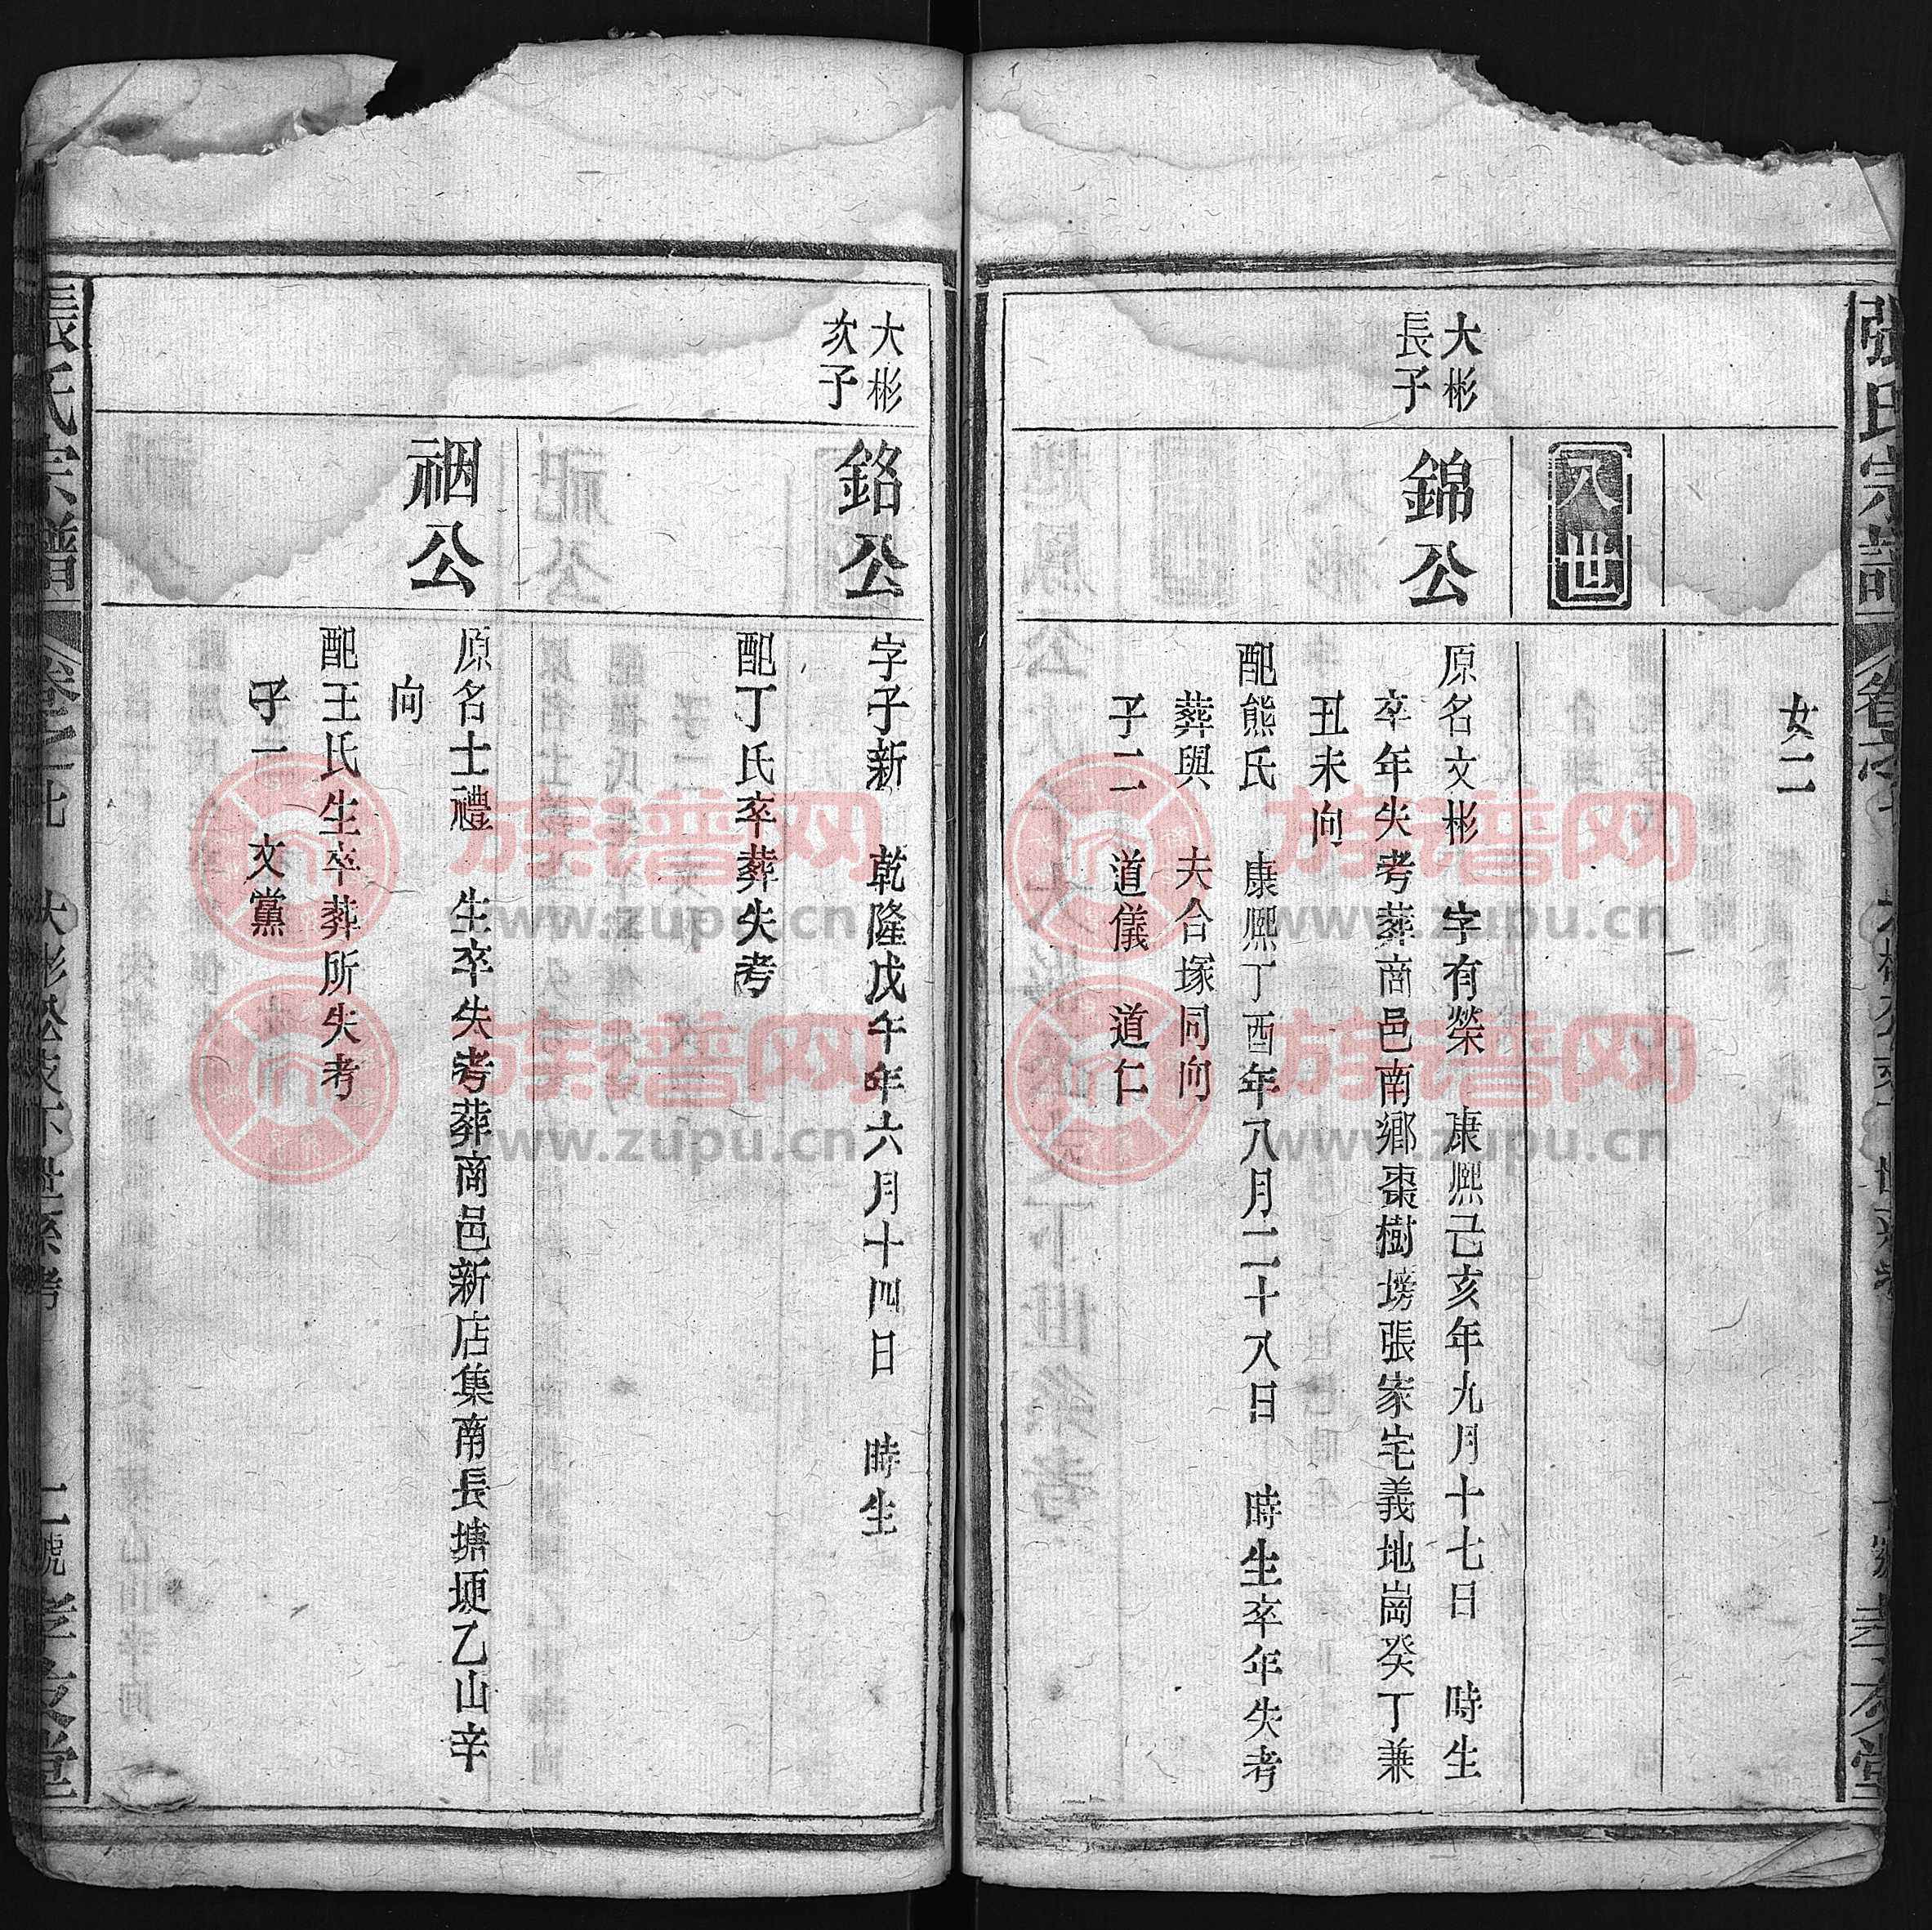 張氏宗譜
女二
八世
大彬
長子
錦公
原名文彬 字有榮 康熙己亥年九月十七日 時生
卒年失考葬商邑南鄉棗樹塝張家宅義地崗癸丁兼
丑未向
配熊氏 康熙丁酉年八月二十八日 時生卒年失考
葬與 夫合塚同向
子二 道儀 道仁
大彬
次子
銘公
字子新 乾隆戊午年六月十四日 時生
配丁氏卒葬失考
裀公
原名士禮 生卒失考葬商邑新店集南長塘埂乙山辛
向
配王氏生卒葬所失考
子一 文黨
張氏宗譜 卷之七 大彬公支下世系考 二號 孝友堂
族谱网
www.zupu.cn
族谱网
www.zupu.cn
族谱网
www.zupu.cn
族谱网
www.zupu.cn